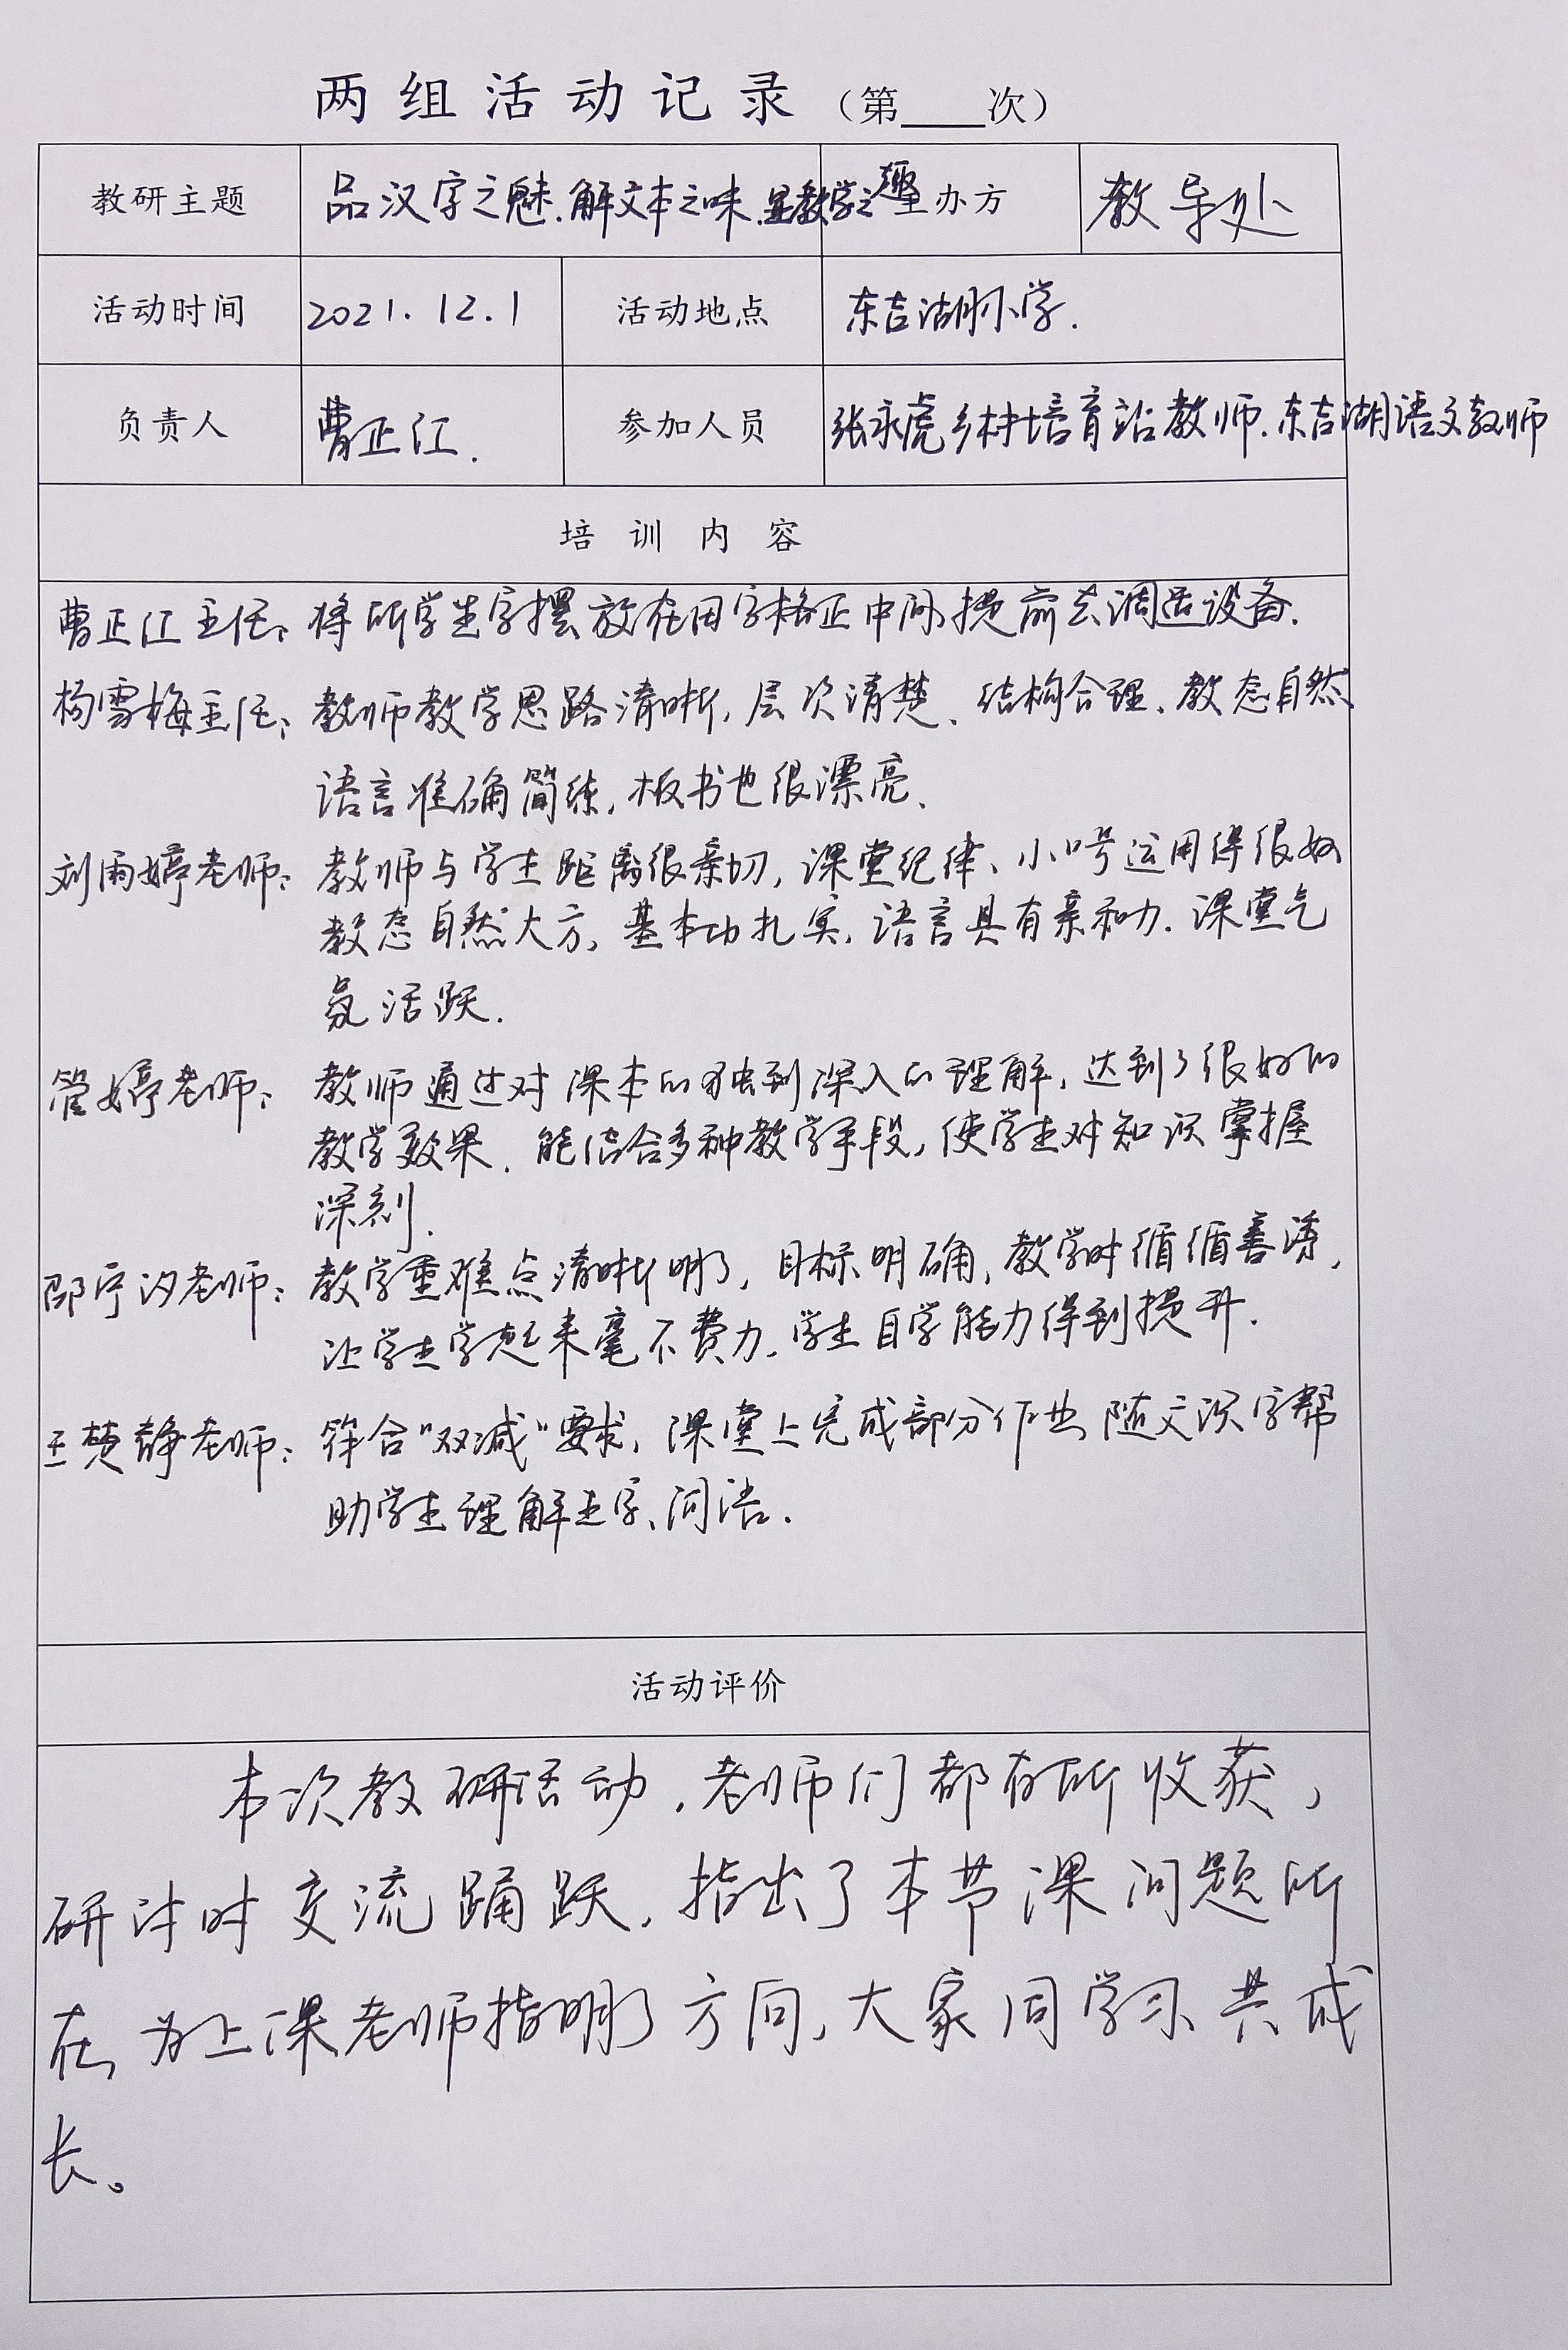 两组活动记录（第____次）
教研主题 品汉字之魅.解文本之味.显教学之趣 主办方 教导处
活动时间 2021.12.1 活动地点 东吉湖小学.
负责人 曹正江. 参加人员 张永虎乡村培育站教师.东吉湖语文教师
培训内容
曹正江主任: 将所学生字摆放在田字格正中间,提前去调适设备.
杨雪梅主任: 教师教学思路清晰,层次清楚、结构合理、教态自然
语言准确简练,板书也很漂亮、
刘雨婷老师: 教师与学生距离很亲切,课堂纪律、小口号运用得很好
教态自然大方,基本功扎实,语言具有亲和力.课堂气
氛活跃.
管婷老师: 教师通过对课本的独到深入的理解,达到了很好的
教学效果、能结合多种教学手段,使学生对知识掌握
深刻.
邵宁汐老师: 教学重难点清晰明了,目标明确,教学时循循善诱,
让学生学起来毫不费力,学生自学能力得到提升.
王楚静老师: 符合“双减”要求,课堂上完成部分作业,随文识字帮
助学生理解生字、词语.
活动评价
本次教研活动,老师们都有所收获,
研讨时交流踊跃,指出了本节课问题所
在,为上课老师指明了方向,大家同学习共成
长。